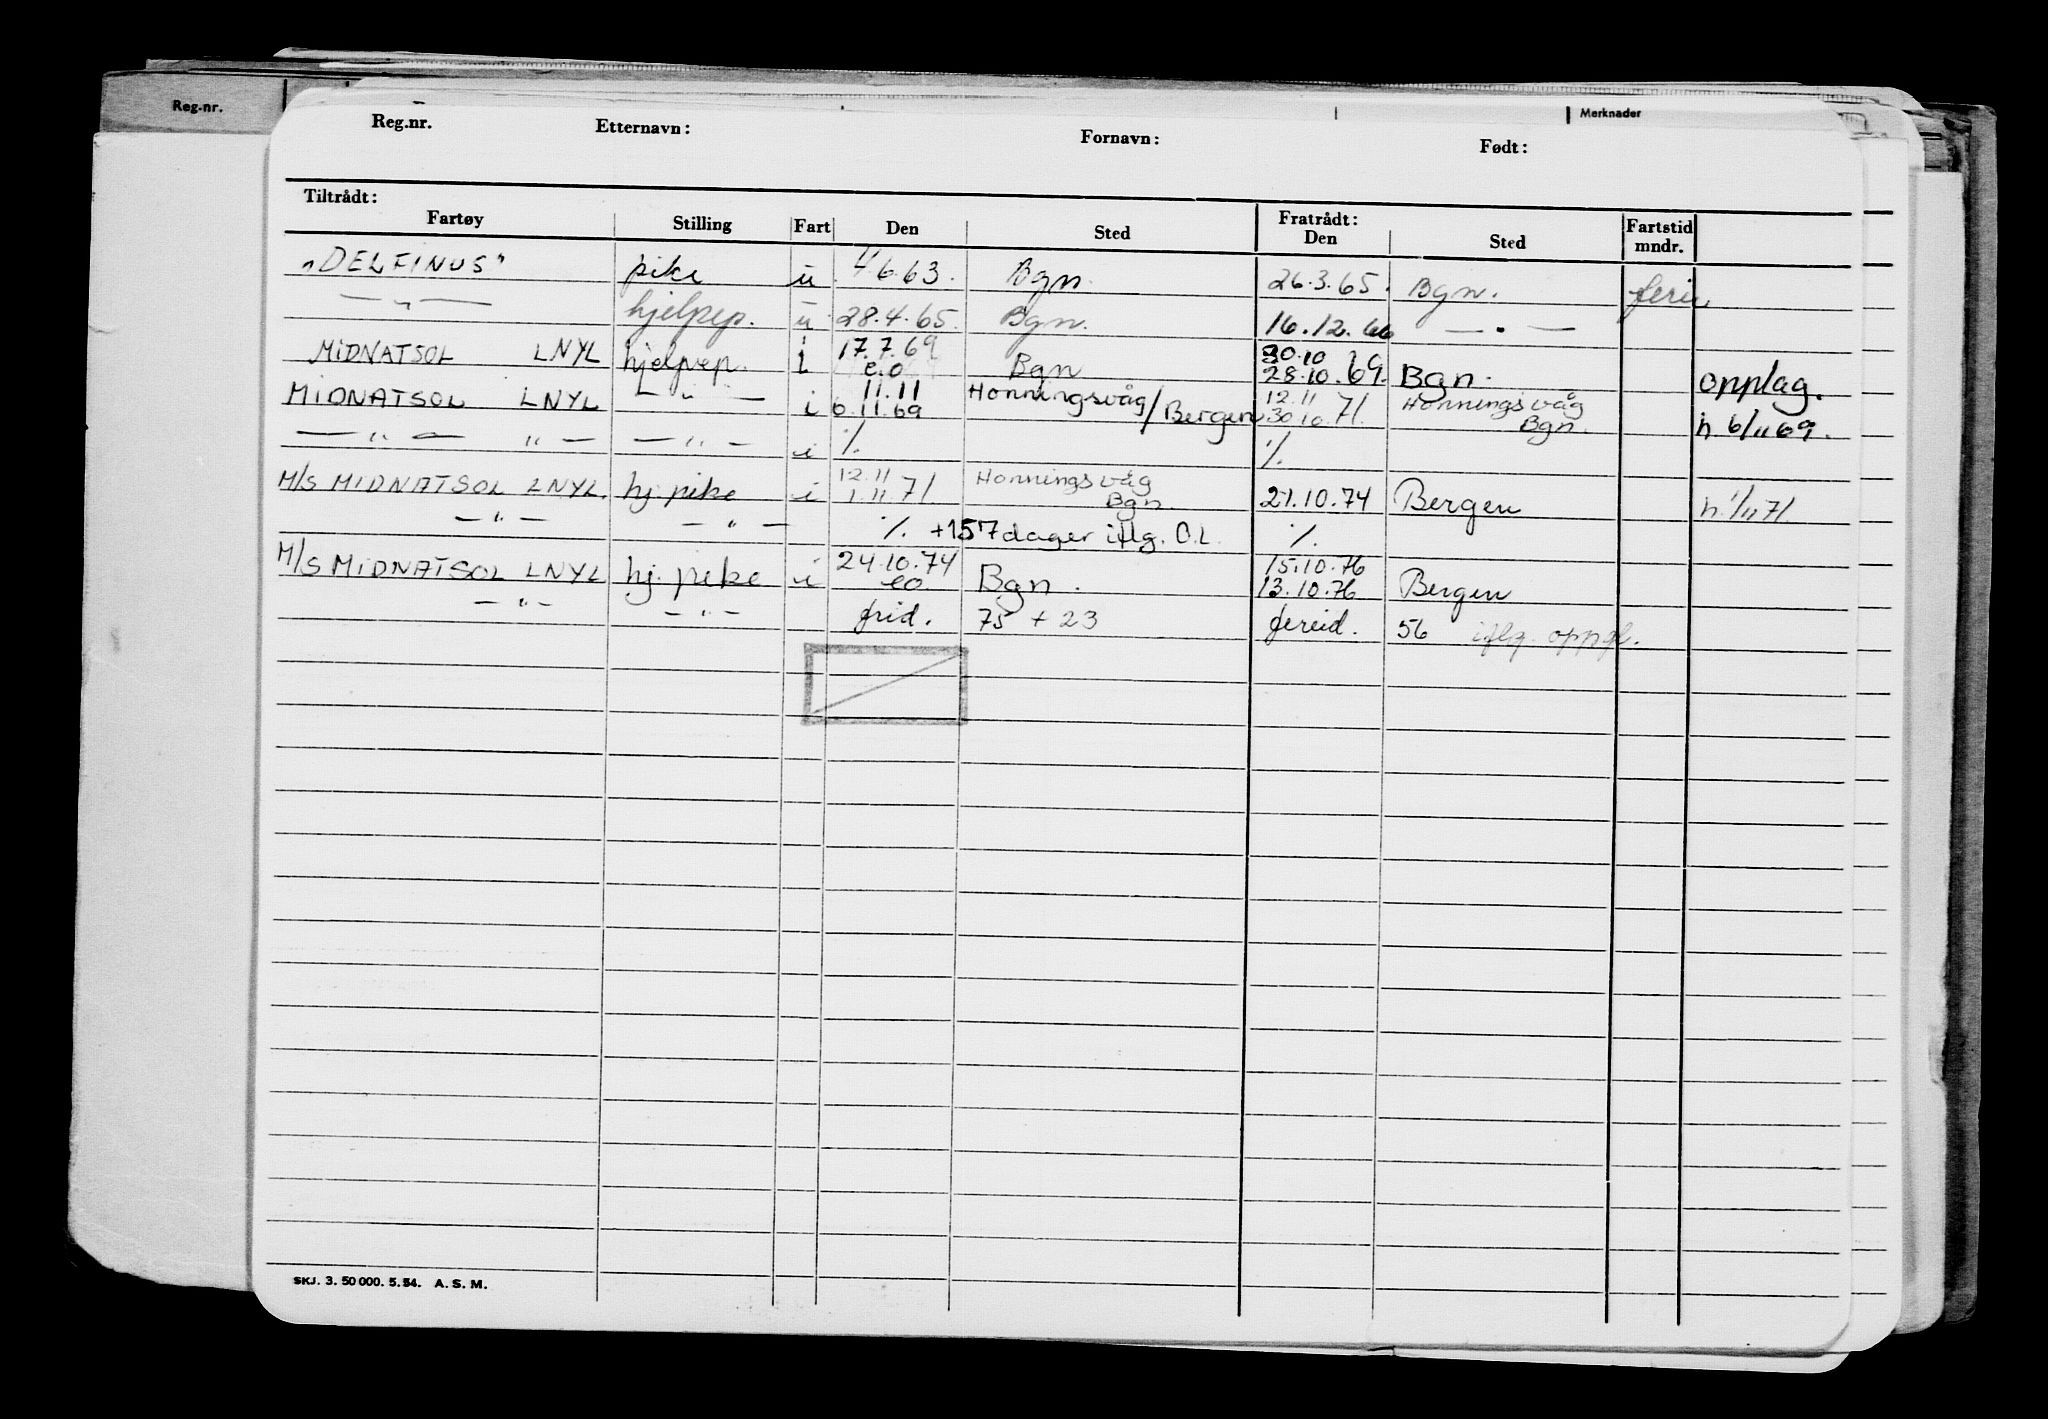 Reg-nr.
Reg.nr. Etternavn: Fornavn: Født: Merknader
Tiltrådt: Fratrådt:
Fartøy Stilling Fart Den Sted Den Sted Fartstid mndr.
"DELFINUS" pike u 4.6.63. Bgn. 26.3.65. Bgn. ferie
— " — hjelpep. u 28.4.65. Bgn. 16.12.66 — " —
MIDNATSOL LNYL hjelpep. i 17.7.69 e.o Bgn 30.10 28.10.69. Bgn. opplag.
MIDNATSOL LNYL — " — i 11.11 6.11.69 Honningsvåg/Bergen 12.11 30.10.71. Honningsvåg Bgn. h. 6/11 69.
— " — " — — " — i ·/. ·/.
M/S MIDNATSOL LNYL. hj. pike i 12.11 1.11 71 Honningsvåg Bgn. 21.10.74 Bergen h. 1/11 71.
— " — — " — ·/. +157 dager iflg. O.L. ·/.
M/S MIDNATSOL LNYL hj. pike i 24.10.74 eo Bgn. 15.10.76 13.10.76 Bergen
— " — — " — frid. 75 + 23 fereid. 56 iflg. oppg.
SKJ. 3. 50 000. 5. 54. A. S. M.